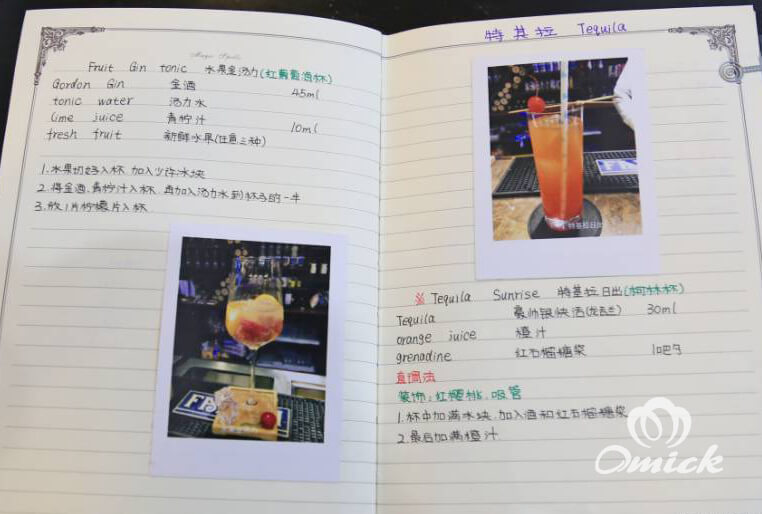 Magic Spells
Fruit Gin tonic 水果金汤力(红葡萄酒杯)
Gordon Gin 金酒 45ml
tonic water 汤力水
lime juice 青柠汁 10ml
fresh fruit 新鲜水果(任意三种)
1.水果切好入杯 加入少许冰块
2.将金酒、青柠汁入杯 再加入汤力水到杯子的一半
3.放1片柠檬片入杯
特基拉 Tequila
特基拉日出
※ Tequila Sunrise 特基拉日出(柯林杯)
Tequila 豪帅银快活(龙舌兰) 30ml
orange juice 橙汁
grenadine 红石榴糖浆 1吧勺
直调法
装饰:红樱桃、吸管
1.杯中加满冰块,加入酒和红石榴糖浆
2.最后加满橙汁
Omick